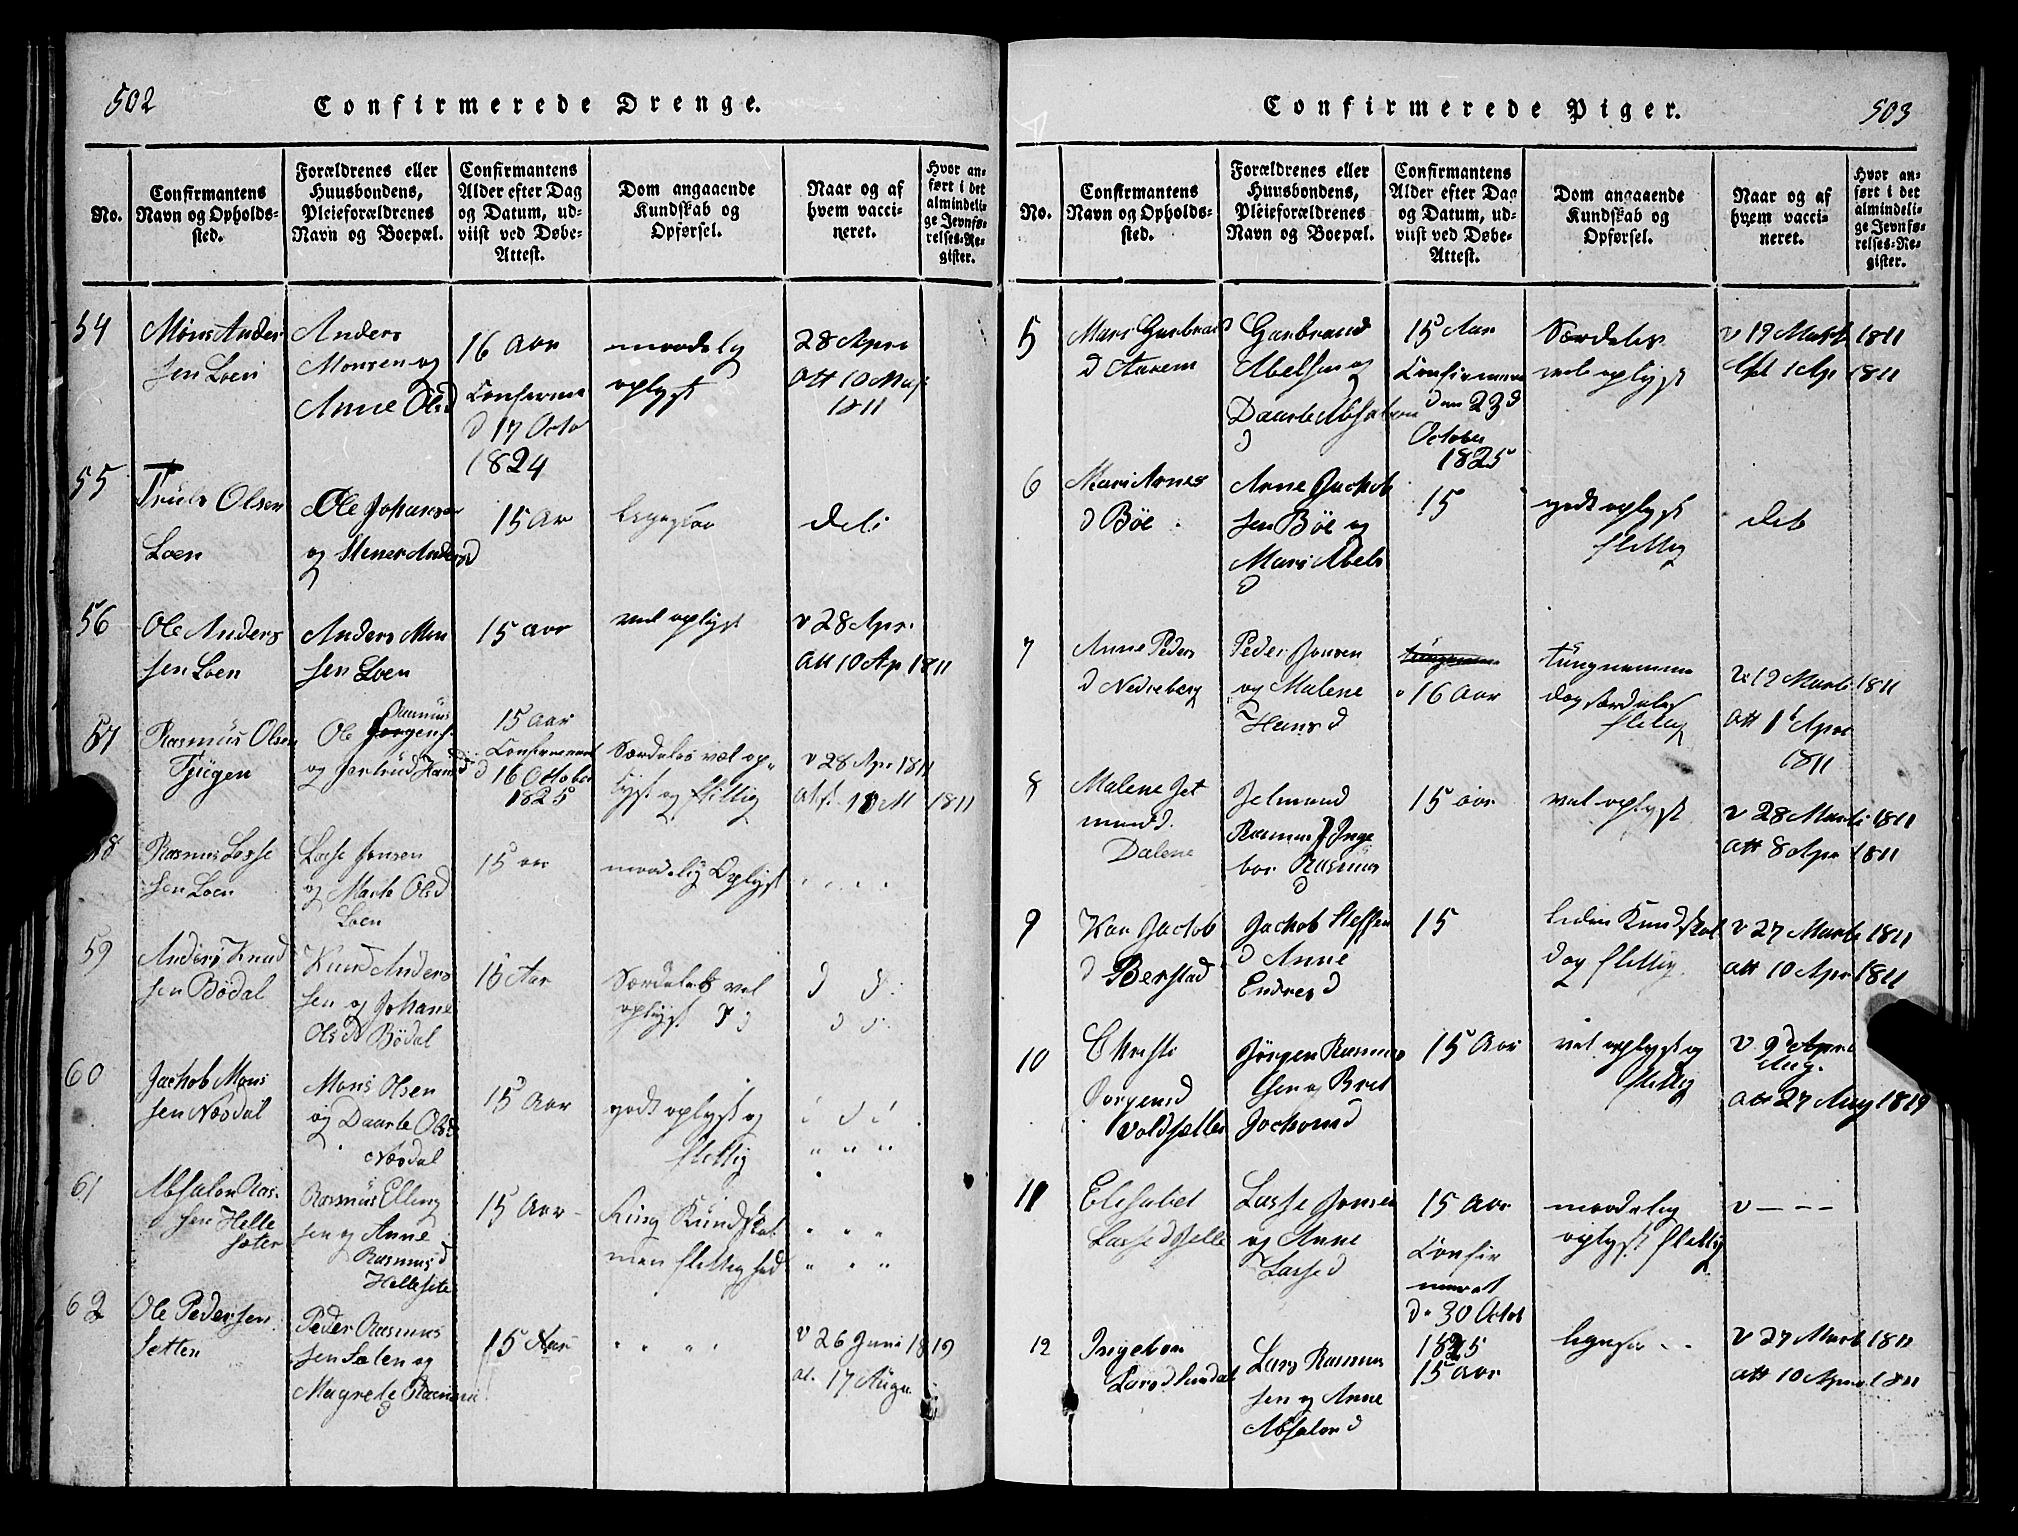 502
Confirmerede Drenge.
No.
Confirmantens
Navn og Opholds-
sted.
Forældrenes eller
Huusbondens,
Pleieforældrenes
Navn og Boepæl.
Confirmantens
Alder efter Dag
og Datum, ud-
viist ved Døbe-
Attest.
Dom angaaende
Kundskab og
Opførsel.
Naar og af
hvem vacci-
neret.
Hvor an-
ført i det
almindeli-
ge Jevnfø-
relses-Re-
gister.
54
Møns Anders
sen Loen
Anders
Monsen og
Anne Olsd
16 Aar
Confirme
d 17 Octo
1824
maadelig
oplyst
28 Apri
att 10 Maj
1811
55
Truls Olsen
Loen
Ole Johansen
og Stener Anders
d
15 Aar
56
Ole Anders
sen Loen
Anders Mon
sen Loen
15 Aar
vel oplyst
v 28 Apr.
att 10 Ap 1811
57
Rasmus Olsen
Tjugen
Rasmus
Ole Jørgens
og Gertrud Hansd
15 Aar
Confirmeret
d 16 October
1825
Særdeles vel op-
lyst og flittig
v 28 Apr 1811
att. 10 M 1811
58
Rasmus Lasse
sen Loen
Lasse Jonsen
og Marte Olsd
Loen
15 aar
maadelig Oplyst
59
Anders Knud
sen Bødal
Knud Anders
sen og Johane
Olsd Bødal
15 Aar
Særdeles vel
oplyst
d d
d d
60
Jachob Mons
sen Nesdal
Mons Olsen
og Daarte Olsd
Næsdal
15 Aar
godt oplyst og
flittig
" d "
" " "
61
Absalon Ras
sen Helle
sæter
Rasmus Elling
sen og Anne
Rasmusd
Hellesete
15 Aar
Ring Kundskab
men flittighed
" " "
" " "
62
Ole Pedersen
Setten
Peder Rasmus
sen Sæten og
Magrete Rasmus
d
15 Aar
" " " "
v 26 Juni 1819
at. 17 Augu
503
Confirmerede Piger.
No.
Confirmantens
Navn og Opholds-
sted.
Forældrenes eller
Huusbondens,
Pleieforældrenes
Navn og Boepæl.
Confirmantens
Alder efter Dag
og Datum, ud-
viist ved Døbe-
Attest.
Dom angaaende
Kundskab og
Opførsel.
Naar og af
hvem vacci-
neret.
Hvor an-
ført i det
almindeli-
ge Jevnfø-
relses-Re-
gister.
5
Mari Garbrand
d Aarem
Garbrand
Abelsen og
Daarte Absalon
d
15 Aar
Confirmere
den 23d
October
1825
Særdeles
vel oplyst
v 19 Marti 1811
1 Ap 1811
6
Mari Arnes
d Böe
Arne Jachob
sen Böe og
Mari Abels
d
15
godt oplyst
flittig
det
7
Anne Peders
d Nedreberg
Peder Jonsen
og Malene
Hansd
16 Aar
tungnemme
dog særdeles
flittig
v 19 Marti 1811
att 1 Apri
1811
8
Malene Jet
mundd.
Dalene
Jetmund
Rasmus Inge
bor Rasmus
d
15 aar
vel oplyst
v 28 Marti 1811
att 8 Apr 1811
9
Kari Jacob
d Berstad
Jachob Steffen
d Anne
Endresd
15
liden Kundskab
dog flittig
v 27 Marti 1811
att 10 Apr 1811
10
Christi
Jorgensd
Voldsætter
Jörgen Rasmus
sen og Bret
Jochomd
15 Aar
vel oplyst og
flittig
v 9 Apri
Aug.
att 27 Aug 1819
11
Elesabet
Lassed
Lasse Jonsen
og Anne
Lassed
15 Aar
Confir
meret
d. 30 Octob
1825
maadelig
oplyst flittig
v - - -
12
Ingebor
Larsd Sundal
Lars Rasmus
sen og Anne
Absalond
15 Aar
v 27 Marti 1811
att 10 Apri 1811